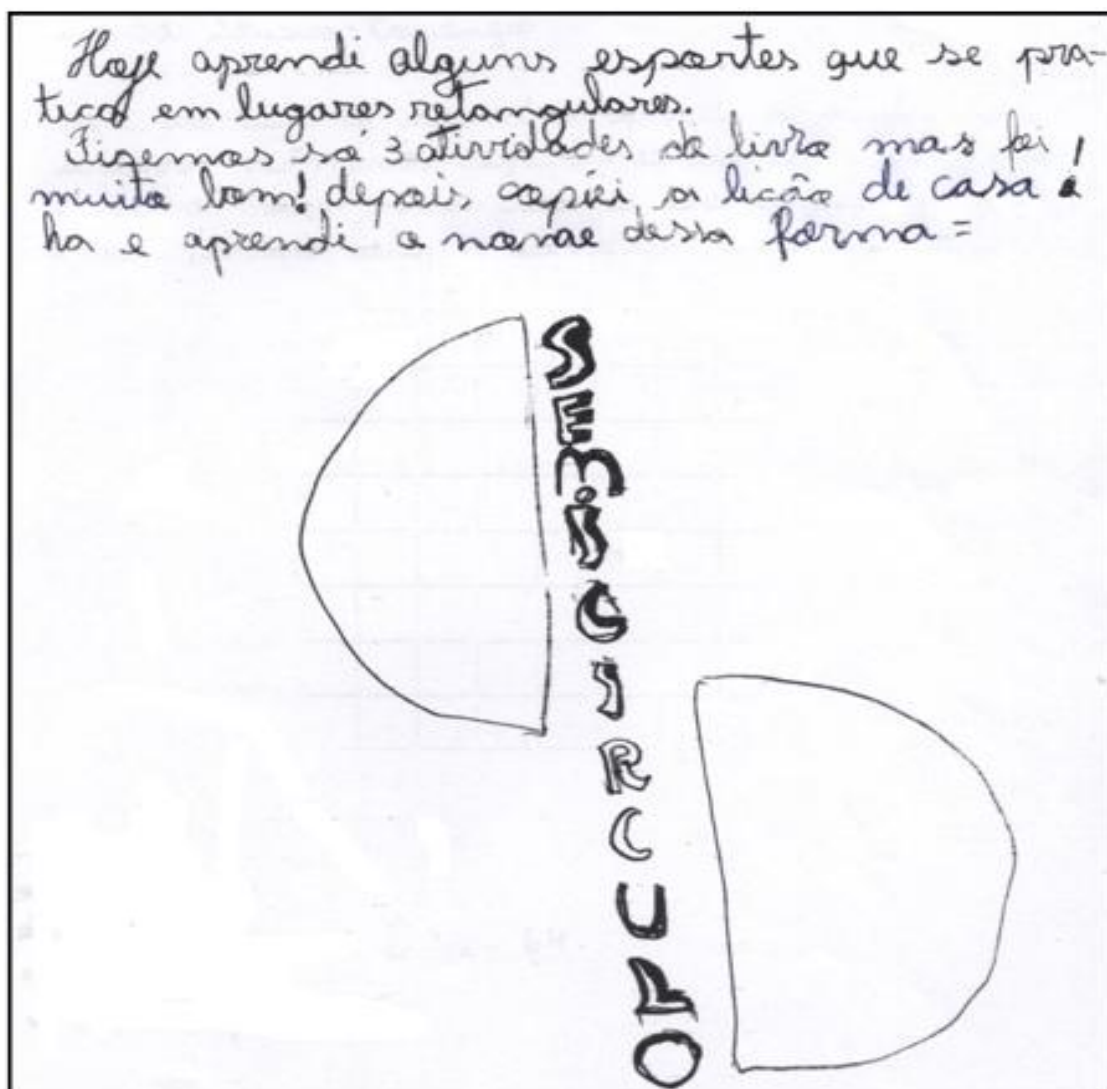 Hoje aprendi alguns esportes que se pra-
tica em lugares retangulares.
Fizemos só 3 atividades do livro mas foi
muito bom! depois copiei a lição de casa!
ha e aprendi o nome dessa forma =
SEMICIRCULO